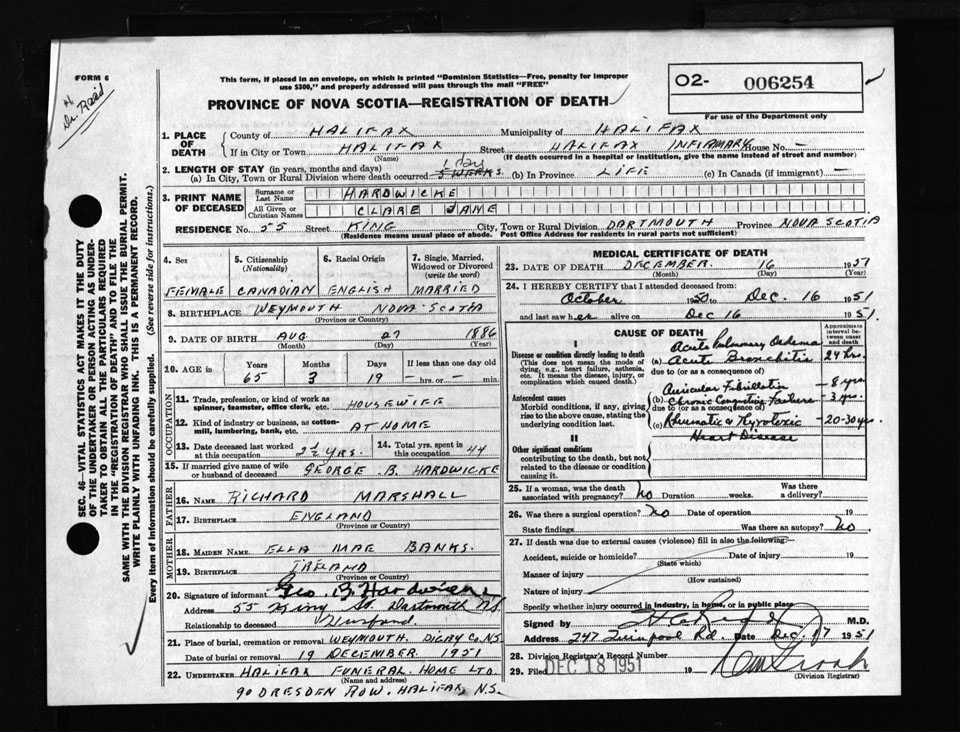 FORM 6
Dr. Reid
This form, if placed in an envelope, on which is printed "Dominion Statistics—Free, penalty for improper
use $300," and properly addressed will pass through the mail "FREE"
PROVINCE OF NOVA SCOTIA—REGISTRATION OF DEATH
O2- 006254
For use of the Department only
1. PLACE OF DEATH
County of HALIFAX Municipality of HALIFAX
If in City or Town HALIFAX Street HALIFAX INFIRMARY House No. —
(Name) (If death occurred in a hospital or institution, give the name instead of street and number)
2. LENGTH OF STAY (in years, months and days) 1 day
(a) In City, Town or Rural Division where death occurred 5 WEEKS (b) In Province LIFE (c) In Canada (if immigrant) —
3. PRINT NAME OF DECEASED
Surname or Last Name HARDWICKE
All Given or Christian Names CLARE JANE
RESIDENCE No. 55 Street KING City, Town or Rural Division DARTMOUTH Province NOVA SCOTIA
(Residence means usual place of abode. Post Office Address for residents in rural parts not sufficient)
4. Sex 5. Citizenship (Nationality) 6. Racial Origin 7. Single, Married, Widowed or Divorced (write the word)
FEMALE CANADIAN ENGLISH MARRIED
8. BIRTHPLACE WEYMOUTH NOVA SCOTIA
(Province or Country)
9. DATE OF BIRTH AUG 27 1886
(Month) (Day) (Year)
10. AGE in Years Months Days If less than one day old
65 3 19 — hrs. or — min.
OCCUPATION
11. Trade, profession, or kind of work as spinner, teamster, office clerk, etc. HOUSEWIFE
12. Kind of industry or business, as cotton-mill, lumbering, bank, etc. AT HOME
13. Date deceased last worked at this occupation 2½ YRS. 14. Total yrs. spent in this occupation 44
15. If married give name of wife or husband of deceased GEORGE B. HARDWICKE
FATHER
16. NAME RICHARD MARSHALL
17. BIRTHPLACE ENGLAND
(Province or Country)
MOTHER
18. MAIDEN NAME ELLA MAE BANKS.
19. BIRTHPLACE IRELAND
(Province or Country)
20. Signature of informant Geo. B. Hardwicke
Address 55 King St. Dartmouth N.S.
Relationship to deceased Husband
21. Place of burial, cremation or removal WEYMOUTH. DIGBY Co. N.S.
Date of burial or removal 19 DECEMBER 1951
22. UNDERTAKER HALIFAX FUNERAL HOME LTD
(Name and address)
90 DRESDEN ROW. HALIFAX, N.S.
MEDICAL CERTIFICATE OF DEATH
23. DATE OF DEATH DECEMBER. 16 1951
(Month) (Day) (Year)
24. I HEREBY CERTIFY that I attended deceased from:
October 1950 to Dec. 16 1951
and last saw her alive on Dec 16 1951.
CAUSE OF DEATH
Approximate interval between onset and death
I
Disease or condition directly leading to death
(This does not mean the mode of dying, e.g., heart failure, asthenia, etc. It means the disease, injury, or complication which caused death.)
Acute Pulmonary Oedema
(a) Acute Bronchitis 24 hrs.
due to (or as a consequence of)
Antecedent causes
Morbid conditions, if any, giving rise to the above cause, stating the underlying condition last.
Auricular Fibrillation — 8 yrs.
(b) Chronic Congestive Failure — 3 yrs.
due to (or as a consequence of)
(c) Rheumatic & Thyrotoxic — 20-30 yrs.
Heart Disease
II
Other significant conditions
contributing to the death, but not related to the disease or condition causing it.
25. If a woman, was the death associated with pregnancy? No Duration weeks. Was there a delivery?
26. Was there a surgical operation? No Date of operation 19
State findings Was there an autopsy? No.
27. If death was due to external causes (violence) fill in also the following:—
Accident, suicide or homicide? Date of injury 19
(State which)
Manner of injury
(How sustained)
Nature of injury
Specify whether injury occurred in industry, in home, or in public place
Signed by M.D.
Address 247 Quinpool Rd. Date Dec. 17 1951
28. Division Registrar's Record Number
29. Filed DEC 18 1951 19
(Division Registrar)
SEC. 46—VITAL STATISTICS ACT MAKES IT THE DUTY
OF THE UNDERTAKER OR PERSON ACTING AS UNDER-
TAKER TO OBTAIN ALL THE PARTICULARS REQUIRED
IN THE "REGISTRATION OF DEATH" AND TO FILE THE
SAME WITH THE DIVISION REGISTRAR WHO SHALL ISSUE THE BURIAL PERMIT.
WRITE PLAINLY WITH UNFADING INK. THIS IS A PERMANENT RECORD.
Every item of information should be carefully supplied. (See reverse side for instructions.)